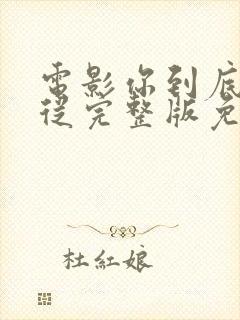 電影你到底
從完整版免
杜紅娘